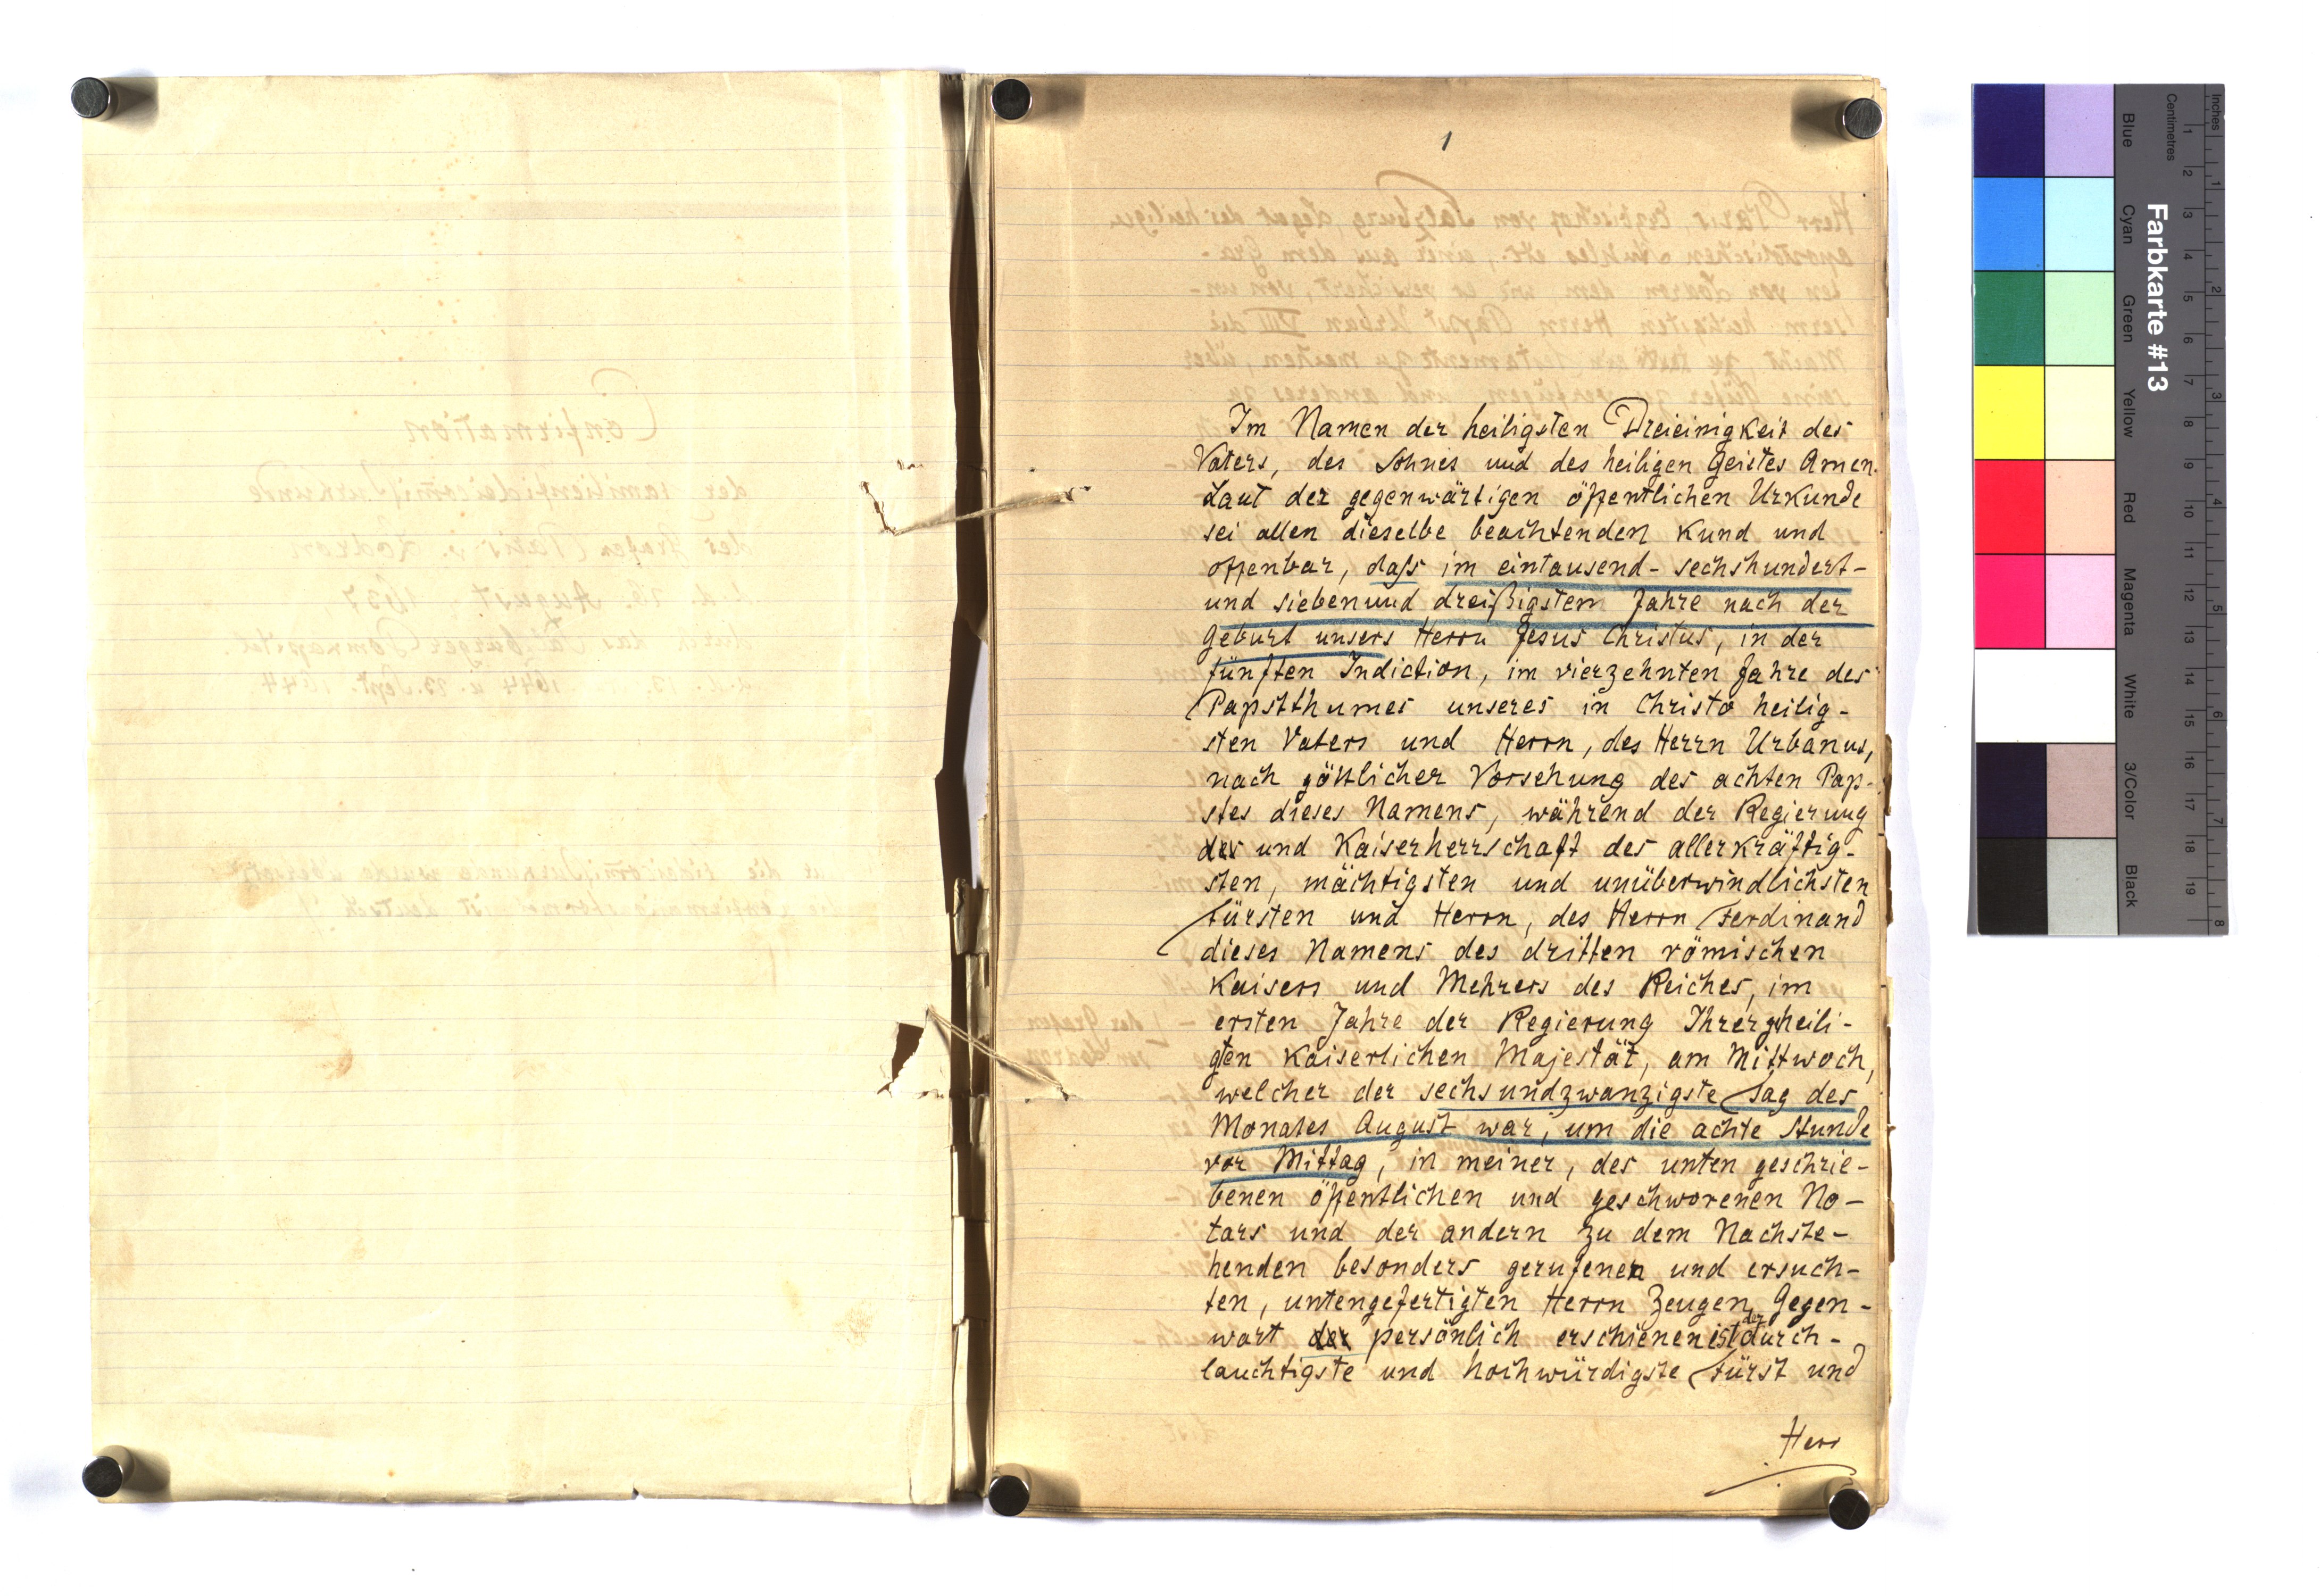 1
Im Namen der heiligsten Dreieinigkeit des
Vaters, des Sohnes und des heiligen Geistes Amen.
Laut der gegenwärtigen öffentlichen Urkunde
sei allen dieselbe beachtenden kund und
offenbar, daß im eintausend- sechshundert-
und siebenund dreißigstem Jahre nach der
Geburt unsers Herrn Jesus Christus, in der
fünften Indiction, im vierzehnten Jahre des
Papstthumes unseres in Christo heilig-
sten Vaters und Herrn, des Herrn Urbanus,
nach göttlicher Vorsehung des achten Pap-
stes dieses Namens, während der Regierung
des und Kaiserherrschaft des allerkräftig-
sten, mächtigsten und unüberwindlichsten
Fürsten und Herrn, des Herrn Ferdinand
dieses Namens des dritten römischen
Kaisers und Mehrers des Reiches, im
ersten Jahre der Regierung Ihrer geheili-
gten kaiserlichen Majestät, am Mittwoch,
welcher der sechsundzwanzigste Tag des
Monates August war, um die achte Stunde
vor Mittag, in meiner, des unten geschrie-
benen öffentlichen und geschworenen No-
tars und der andern zu dem Nachste-
henden besonders gerufenen und ersuch-
ten, untengefertigten Herrn Zeugen Gegen-
wart der persönlich erschienen ist der durch-
lauchtigste und hochwürdigste Fürst und
Herr
Confirmation
der Familienfideicomiß-Urkunde
des Grafen Paris v. Lodron
d. d. 26. August 1637,
durch das Salzburger Domkapitel
1644 u. 23. Sept. 1644
Farbkarte #13
Blue
Cyan
Green
Yellow
Red
Magenta
White
3/Color
Black
Inches
1
2
3
4
5
6
7
8
Centimetres
1
2
3
4
5
6
7
8
9
10
11
12
13
14
15
16
17
18
19